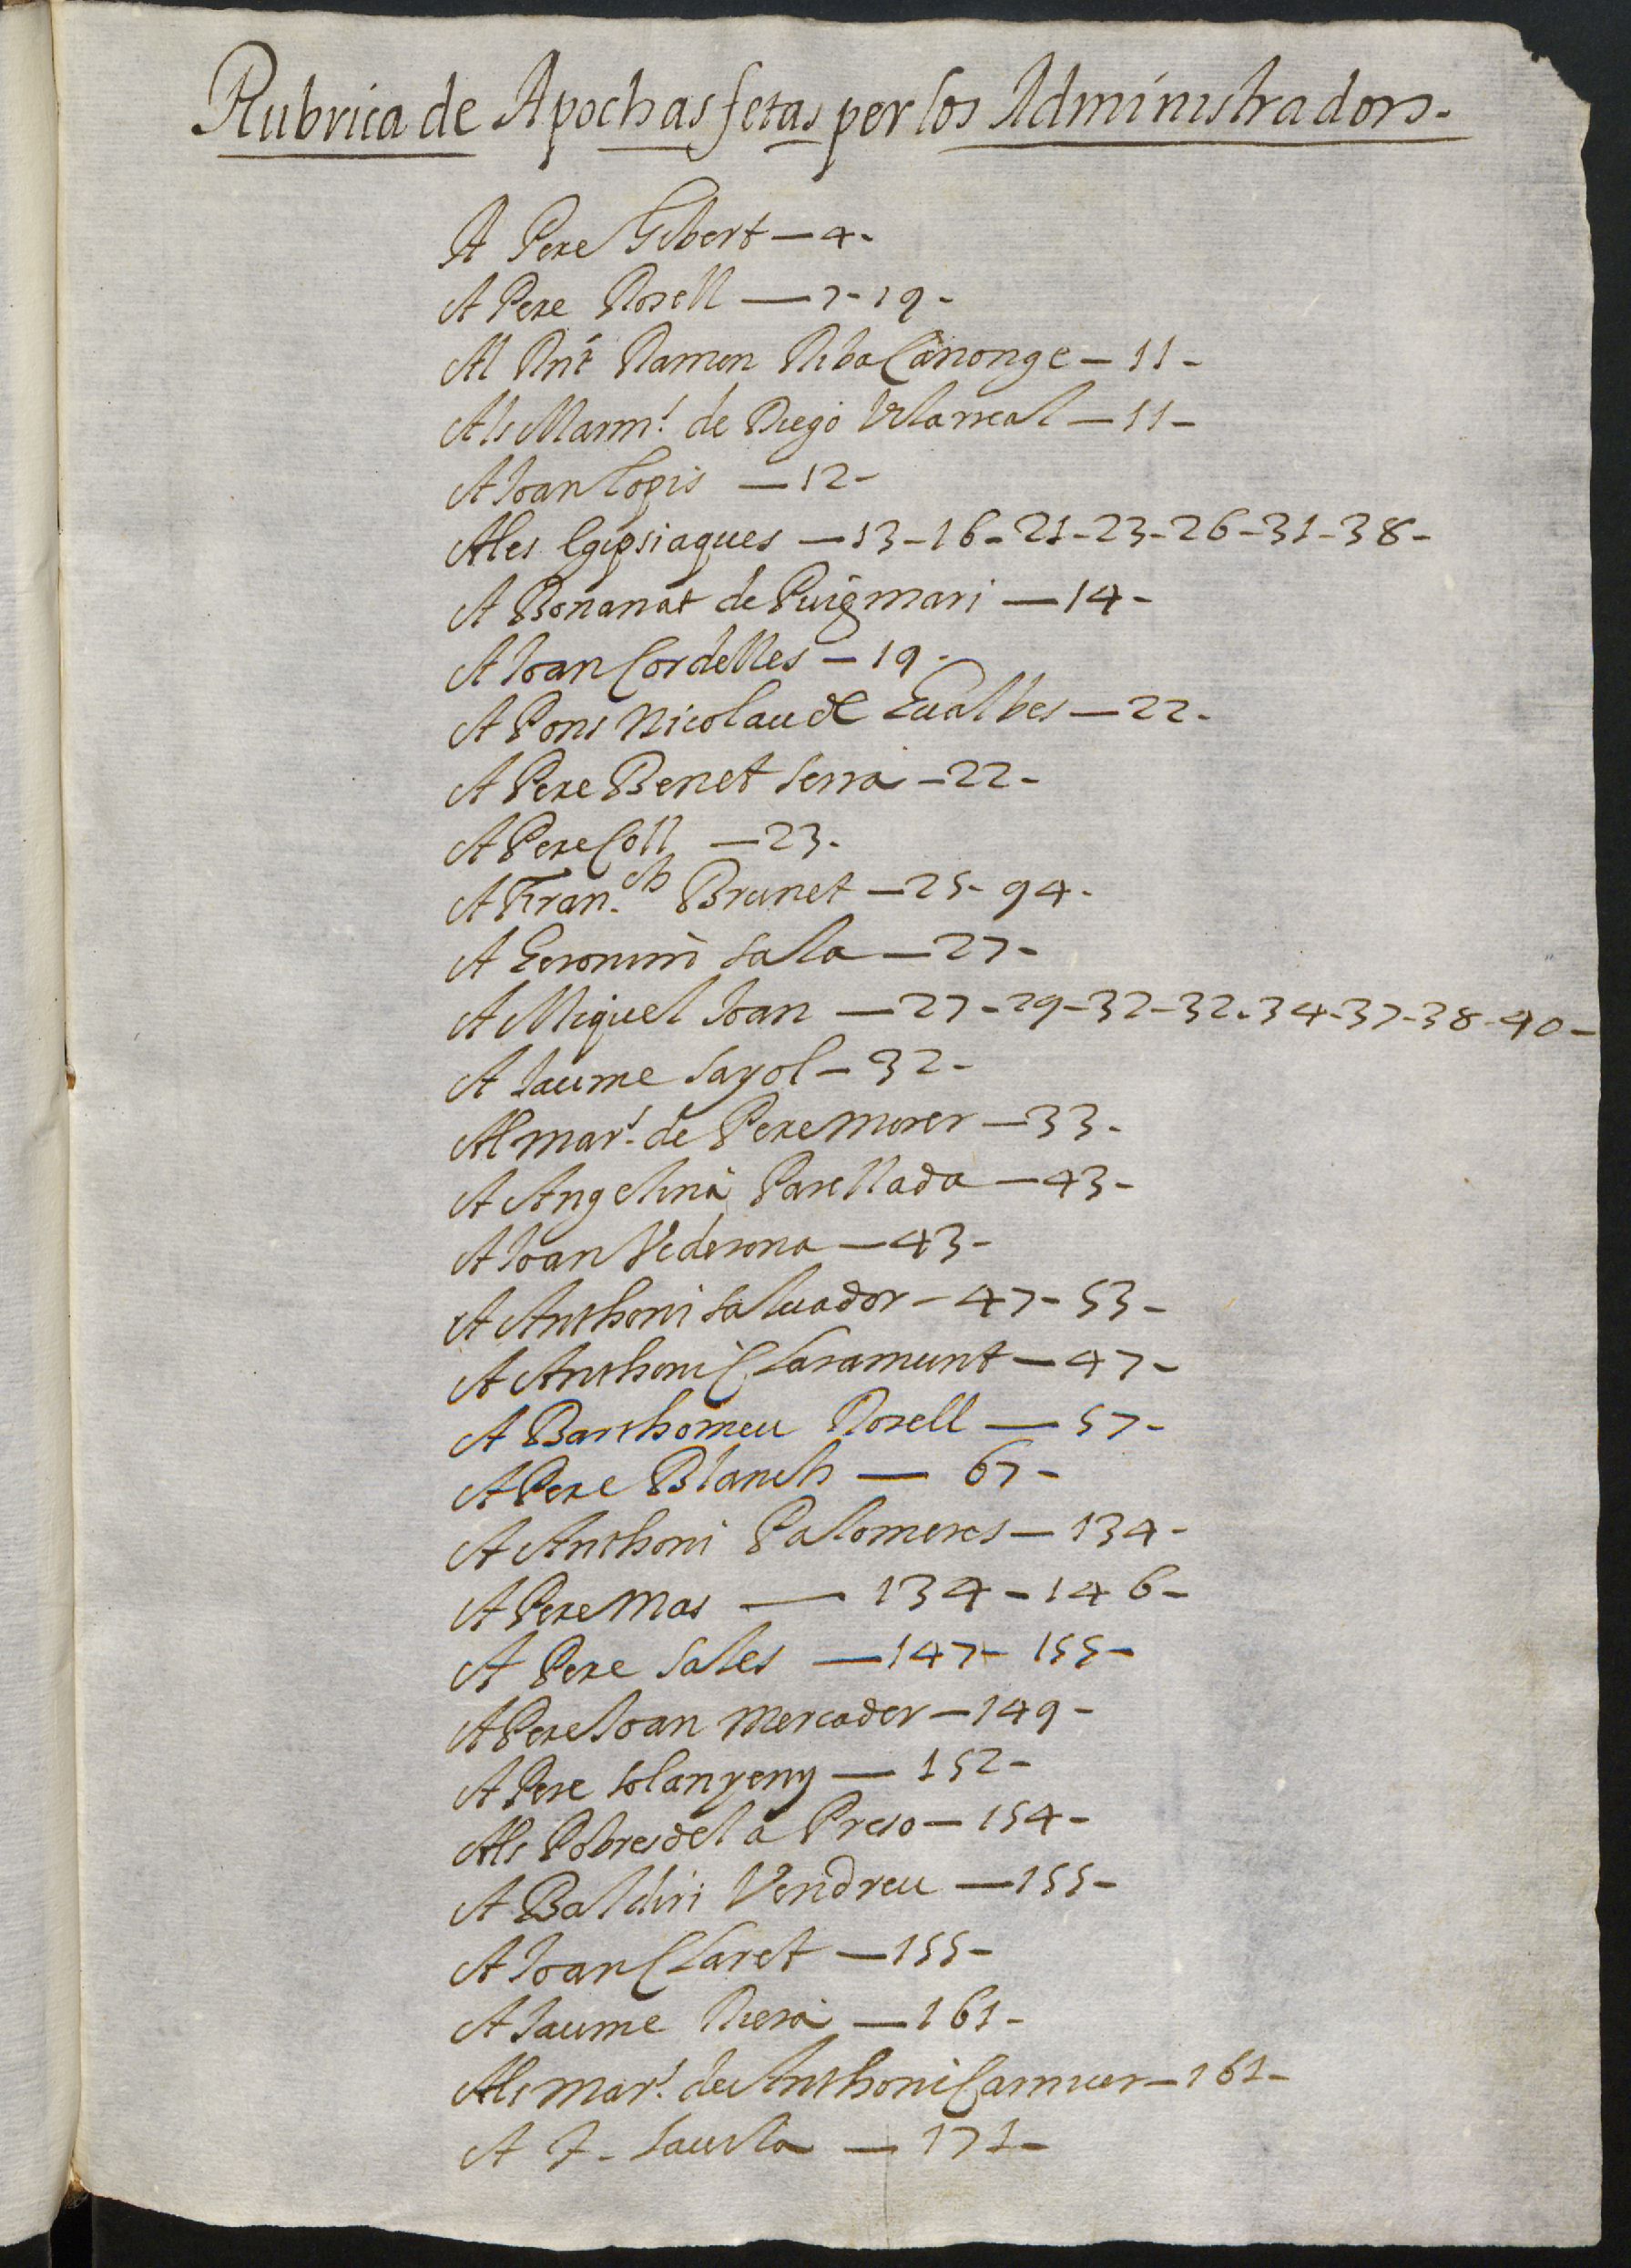 Rubrica de Apochas fetas per los Administradors.
A Pere Gibert — 4 -
A Pere Rosell — 7 - 19 -
Al Rnt Ramon Riba Canonge — 11 -
Als Marm.ʳ de Diego Vilarreal — 11 -
A Joan Lopis — 12 -
A les Egipsiaques — 13 - 16 - 21 - 23 - 26 - 31 - 38 -
A Bonanat de Puigmari — 14 -
A Joan Cordelles — 19 -
A Pons Nicolau de Gualbes — 22 -
A Pere Benet Serra — 22 -
A Pere Coll — 23 -
A Fran.ch Brunet — 25 - 94 -
A Geronim Sala — 27 -
A Miquel Joan — 27 - 29 - 32 - 32 - 34 - 37 - 38 - 40 -
A Jaume Sayol — 32 -
Al mar.ʳ de Pere Morer — 33 -
A Angelina Parellada — 43 -
A Joan Vederona — 43 -
A Anthoni Saluador — 47 - 53 -
A Anthoni Claramunt — 47 -
A Barthomeu Rosell — 57 -
A Pere Blanch — 67 -
A Anthoni Palomeres — 134 -
A Pere Mas — 134 - 146 -
A Pere Sales — 147 - 155 -
A Pere Joan Mercader — 149 -
A Pere Solanyeny — 152 -
Als Pobres de la Preso — 154 -
A Baldiri Vendreu — 155 -
A Joan Claret — 155 -
A Jaume Riera — 161 -
Als mar.ʳ de Anthoni — 161 -
A — 171 -